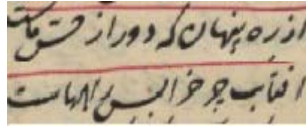 از ره پنهان که دور از حس ماست
آفتاب چرخ را بس راههاست